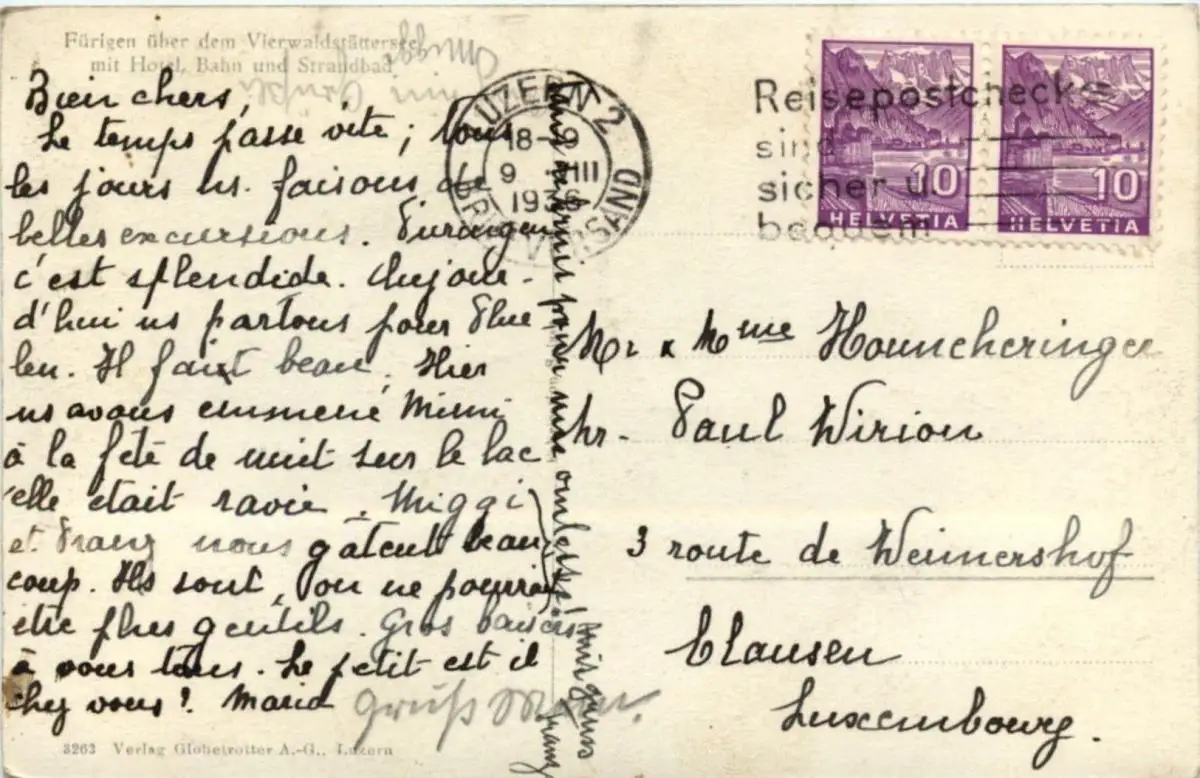 Fürigen über dem Vierwaldstättersee
mit Hotel, Bahn und Strandbad
Bien chers,
Le temps passe vite; tous
les jours ns. faisons de
belles excursions. Furingen
c'est splendide. Aujour-
d'hui ns partons pour Flue
len. Il fait beau. Hier
ns avons emmené Mimi
à la fête de nuit sur le lac
elle était ravie. Miggi
et Franz nous gâtent beau
coup. Ils sont, on ne pourrait
être plus gentils. Gros baisers
à vous tous. Le petit est il
chez vous? Maria
Grüß
3263 Verlag Globetrotter A.-G., Luzern
pour une omelette!
Franz
LUZERN 2
18-9
9 VIII
1936
BRIEFVERSAND
Reisepostchecks
sind
sicher u.
bequem
10
HELVETIA
10
HELVETIA
Mr & Mme Houncheringer
Mr. Paul Wirion
3 route de Weimershof
Clausen
Luxembourg.